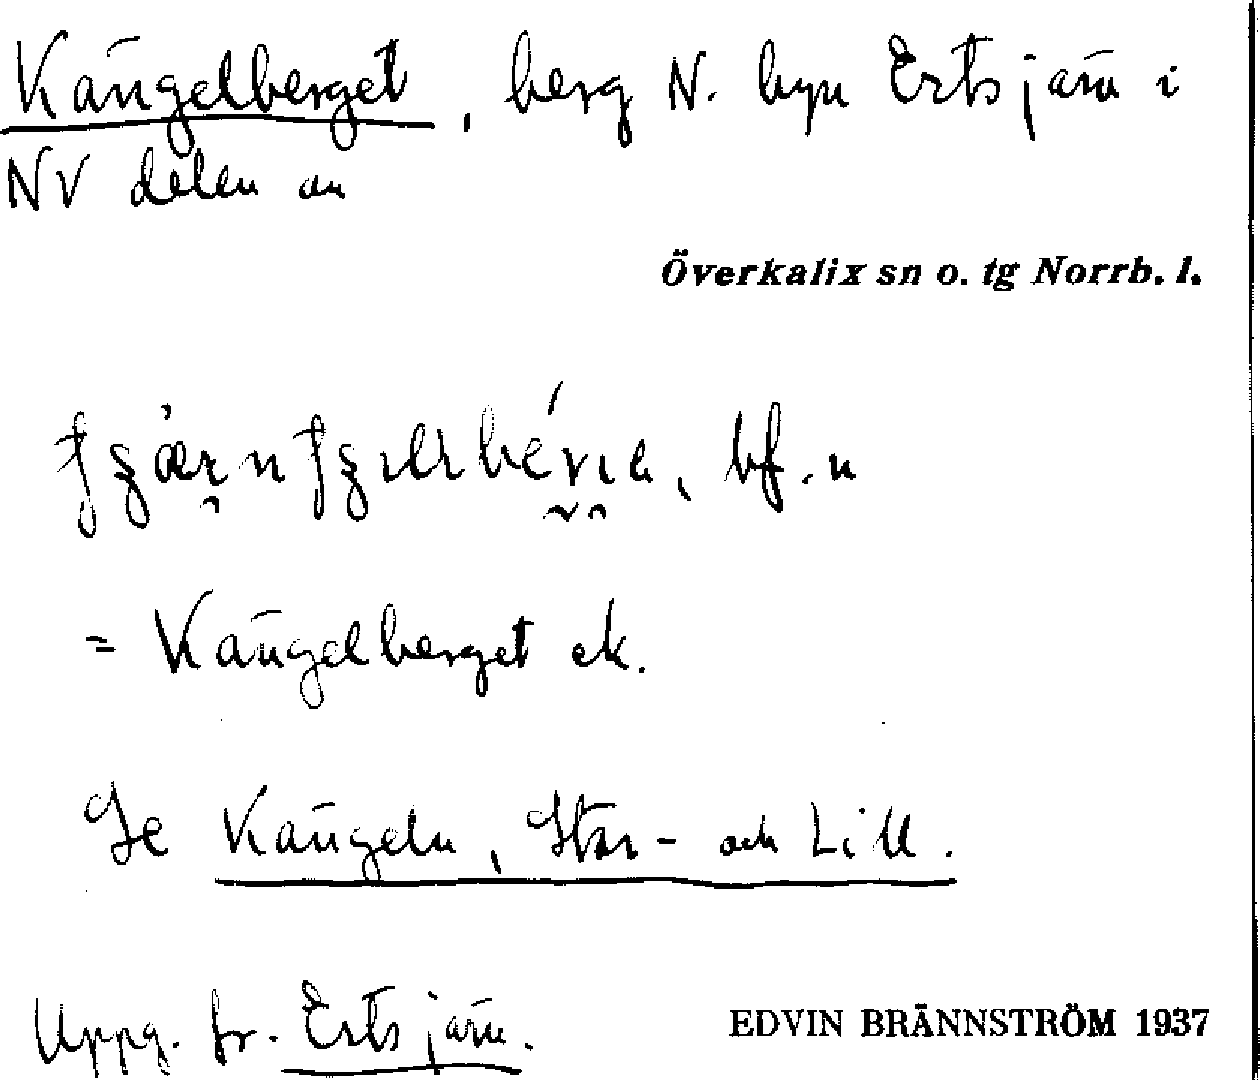 Kängelberget, berg N. byn Ertsjärv i
NV delen av
Överkalix sn o. tg Norrb. l.
bf. n
= Kängelberget ek.
Se Kängeln, Stor- och Lill.
Uppg. fr. Ertsjärv.
EDVIN BRÄNNSTRÖM 1937